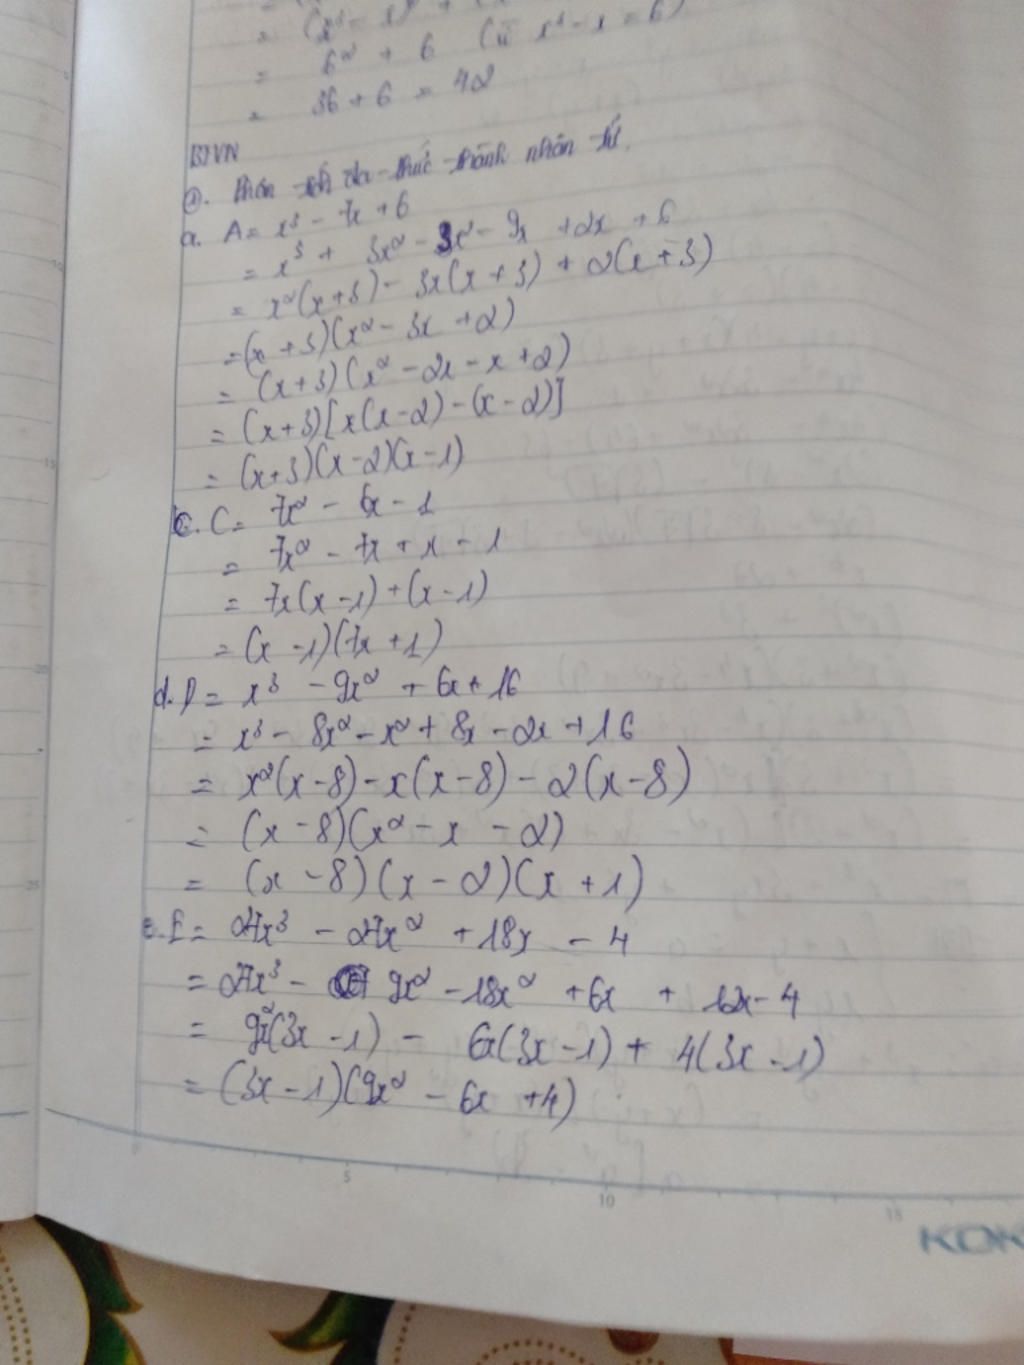 = 6² + 6 (vì x² - x = 6)
= 36 + 6 = 42
BTVN
Phân tích đa thức thành nhân tử.
a. A = x³ - 7x + 6
= x³ + 3x² - 3x² - 9x + 2x + 6
= x²(x+3) - 3x(x+3) + 2(x+3)
= (x+3)(x² - 3x + 2)
= (x+3)(x² - 2x - x + 2)
= (x+3)[x(x-2) - (x-2)]
= (x+3)(x-2)(x-1)
c. C = 7x² - 6x - 1
= 7x² - 7x + x - 1
= 7x(x-1) + (x-1)
= (x-1)(7x+1)
d. D = x³ - 9x² + 6x + 16
= x³ - 8x² - x² + 8x - 2x + 16
= x²(x-8) - x(x-8) - 2(x-8)
= (x-8)(x² - x - 2)
= (x-8)(x-2)(x+1)
e. E = 27x³ - 27x² + 18x - 4
= 27x³ - 9x² - 18x² + 6x + 12x - 4
= 9x²(3x-1) - 6x(3x-1) + 4(3x-1)
= (3x-1)(9x² - 6x + 4)
5 10 15
KOK